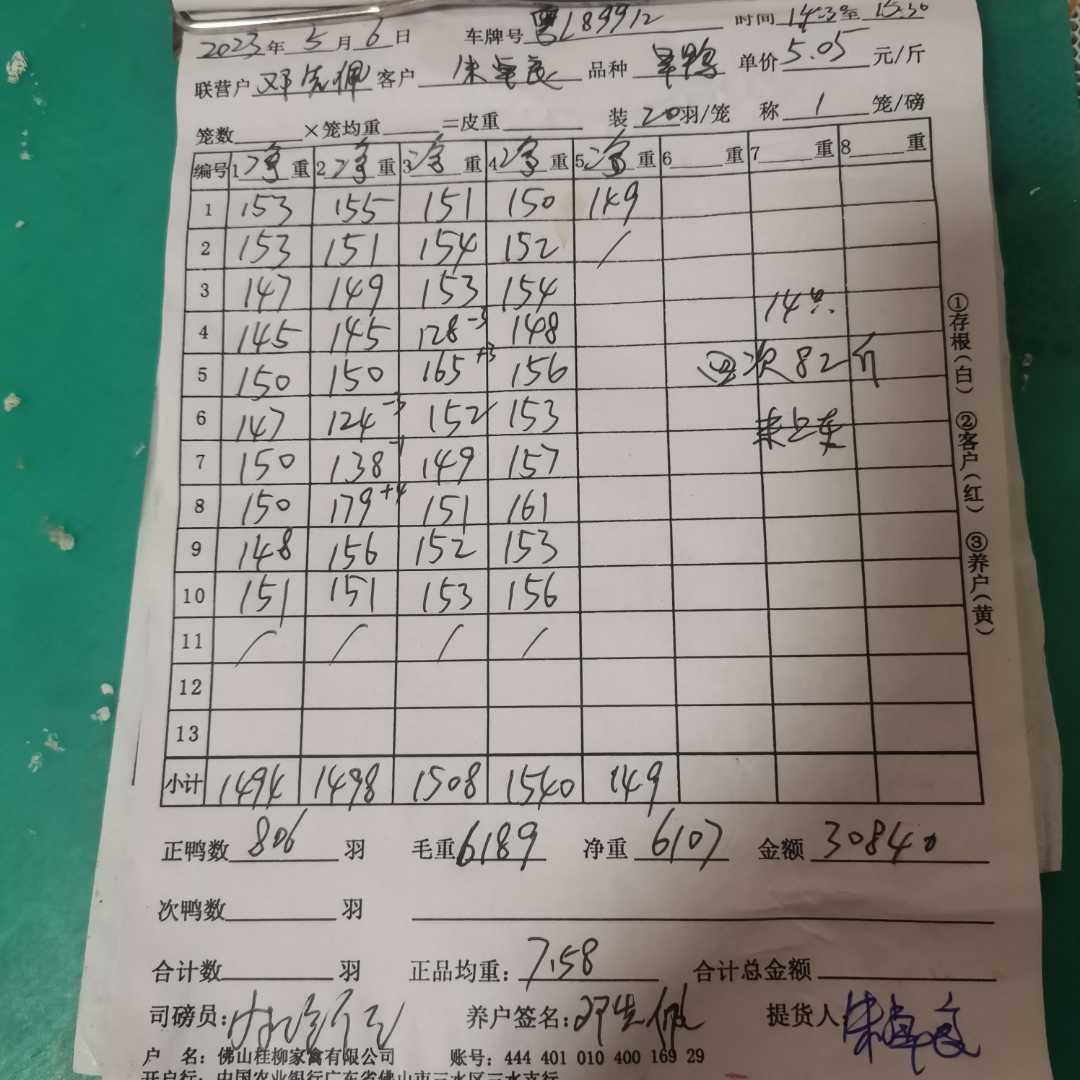 2023年5月6日 车牌号 粤L89912 时间 14:30至15:30
联营户 邓志佩 客户 朱卓良 品种 单价 5.05 元/斤
笼数 ×笼均重 =皮重 装 20 羽/笼 称 1 笼/磅
编号 1 净 重 2 净 重 3 净 重 4 净 重 5 净 重 6 重 7 重 8 重
1 153 155 151 150 149
2 153 151 154 152 /
3 147 149 153 154
14只
4 145 145 128-3 148
5 150 150 165+3 156
82斤
6 147 124-3 152 153
7 150 138-1 149 157
8 150 179+4 151 161
9 148 156 152 153
10 151 151 153 156
11 / / / /
12
13
小计 1494 1498 1508 1540 149
①存根(白) ②客户(红) ③养户(黄)
正鸭数 806 羽 毛重 6189 净重 6107 金额 30840
次鸭数 羽
合计数 羽 正品均重: 7.58 合计总金额
司磅员: 养户签名: 提货人 朱卓良
户 名: 佛山桂柳家禽有限公司 账号: 444 401 010 400 169 29
开户行: 中国农业银行广东省佛山市三水区三水支行